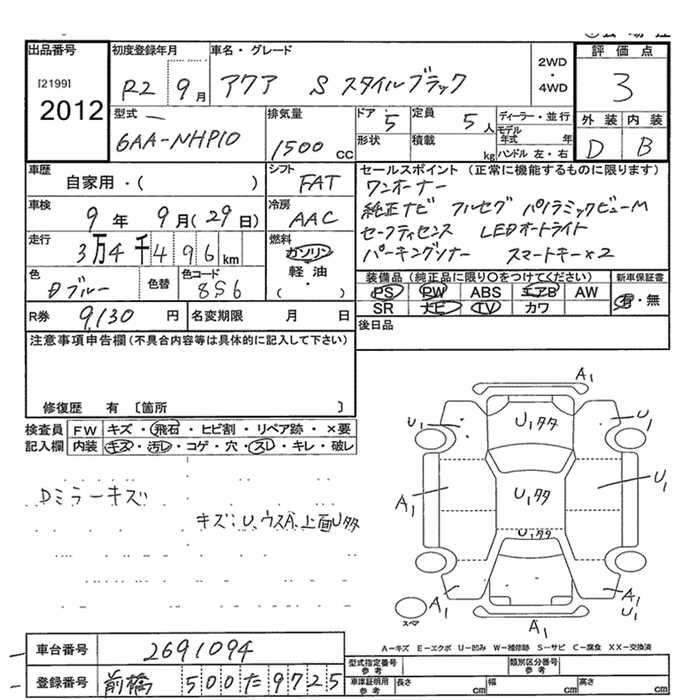 出品番号
[2199]
2012
初度登録年月
R2 9月
車名・グレード
アクア S スタイルブラック
2WD
・
4WD
評価点
3
型式
6AA-NHP10
排気量
1500 CC
ドア 5
定員 5人
形状
積載 kg
ディーラー・並行
モデル年式 年
ハンドル 左・右
外装 内装
D B
車歴
自家用・( )
シフト
FAT
車検
9年 9月(29日)
冷房
AAC
走行
3万4千496km
燃料
ガソリン
・
軽油
・
( )
色
Dブルー
色替
色コード
8S6
R券 9,130円
名変期限 月 日
セールスポイント(正常に機能するものに限ります)
ワンオーナー
純正ナビ フルセグ パノラミックビューM
セーフティセンス LEDオートライト
パーキングソナー スマートキー×2
装備品(純正品に限り○をつけてください)
PS PW ABS エアB AW
SR ナビ TV カワ
新車保証書
有・無
後日品
注意事項申告欄(不具合内容等は具体的に記入して下さい)
修復歴 有 〔箇所 〕
検査員記入欄
FW キズ・飛石・ヒビ割・リペア跡・×要
内装 キズ・汚レ・コゲ・穴・スレ・キレ・破レ
Dミラーキズ
キズ:U、ウスA、上面Uタタ
A1
U1 U1タタ U1
A1 U1タタ U1
U1タタ
A1 A1 U1
A1
スペア
A-キズ E-エクボ U-凹み W-補修跡 S-サビ C-腐食 XX-交換済
車台番号 2691094
登録番号 前橋 500た9725
型式指定番号 参考
類別区分番号 参考
車庫証明用 参考
長さ cm
幅 cm
高さ cm